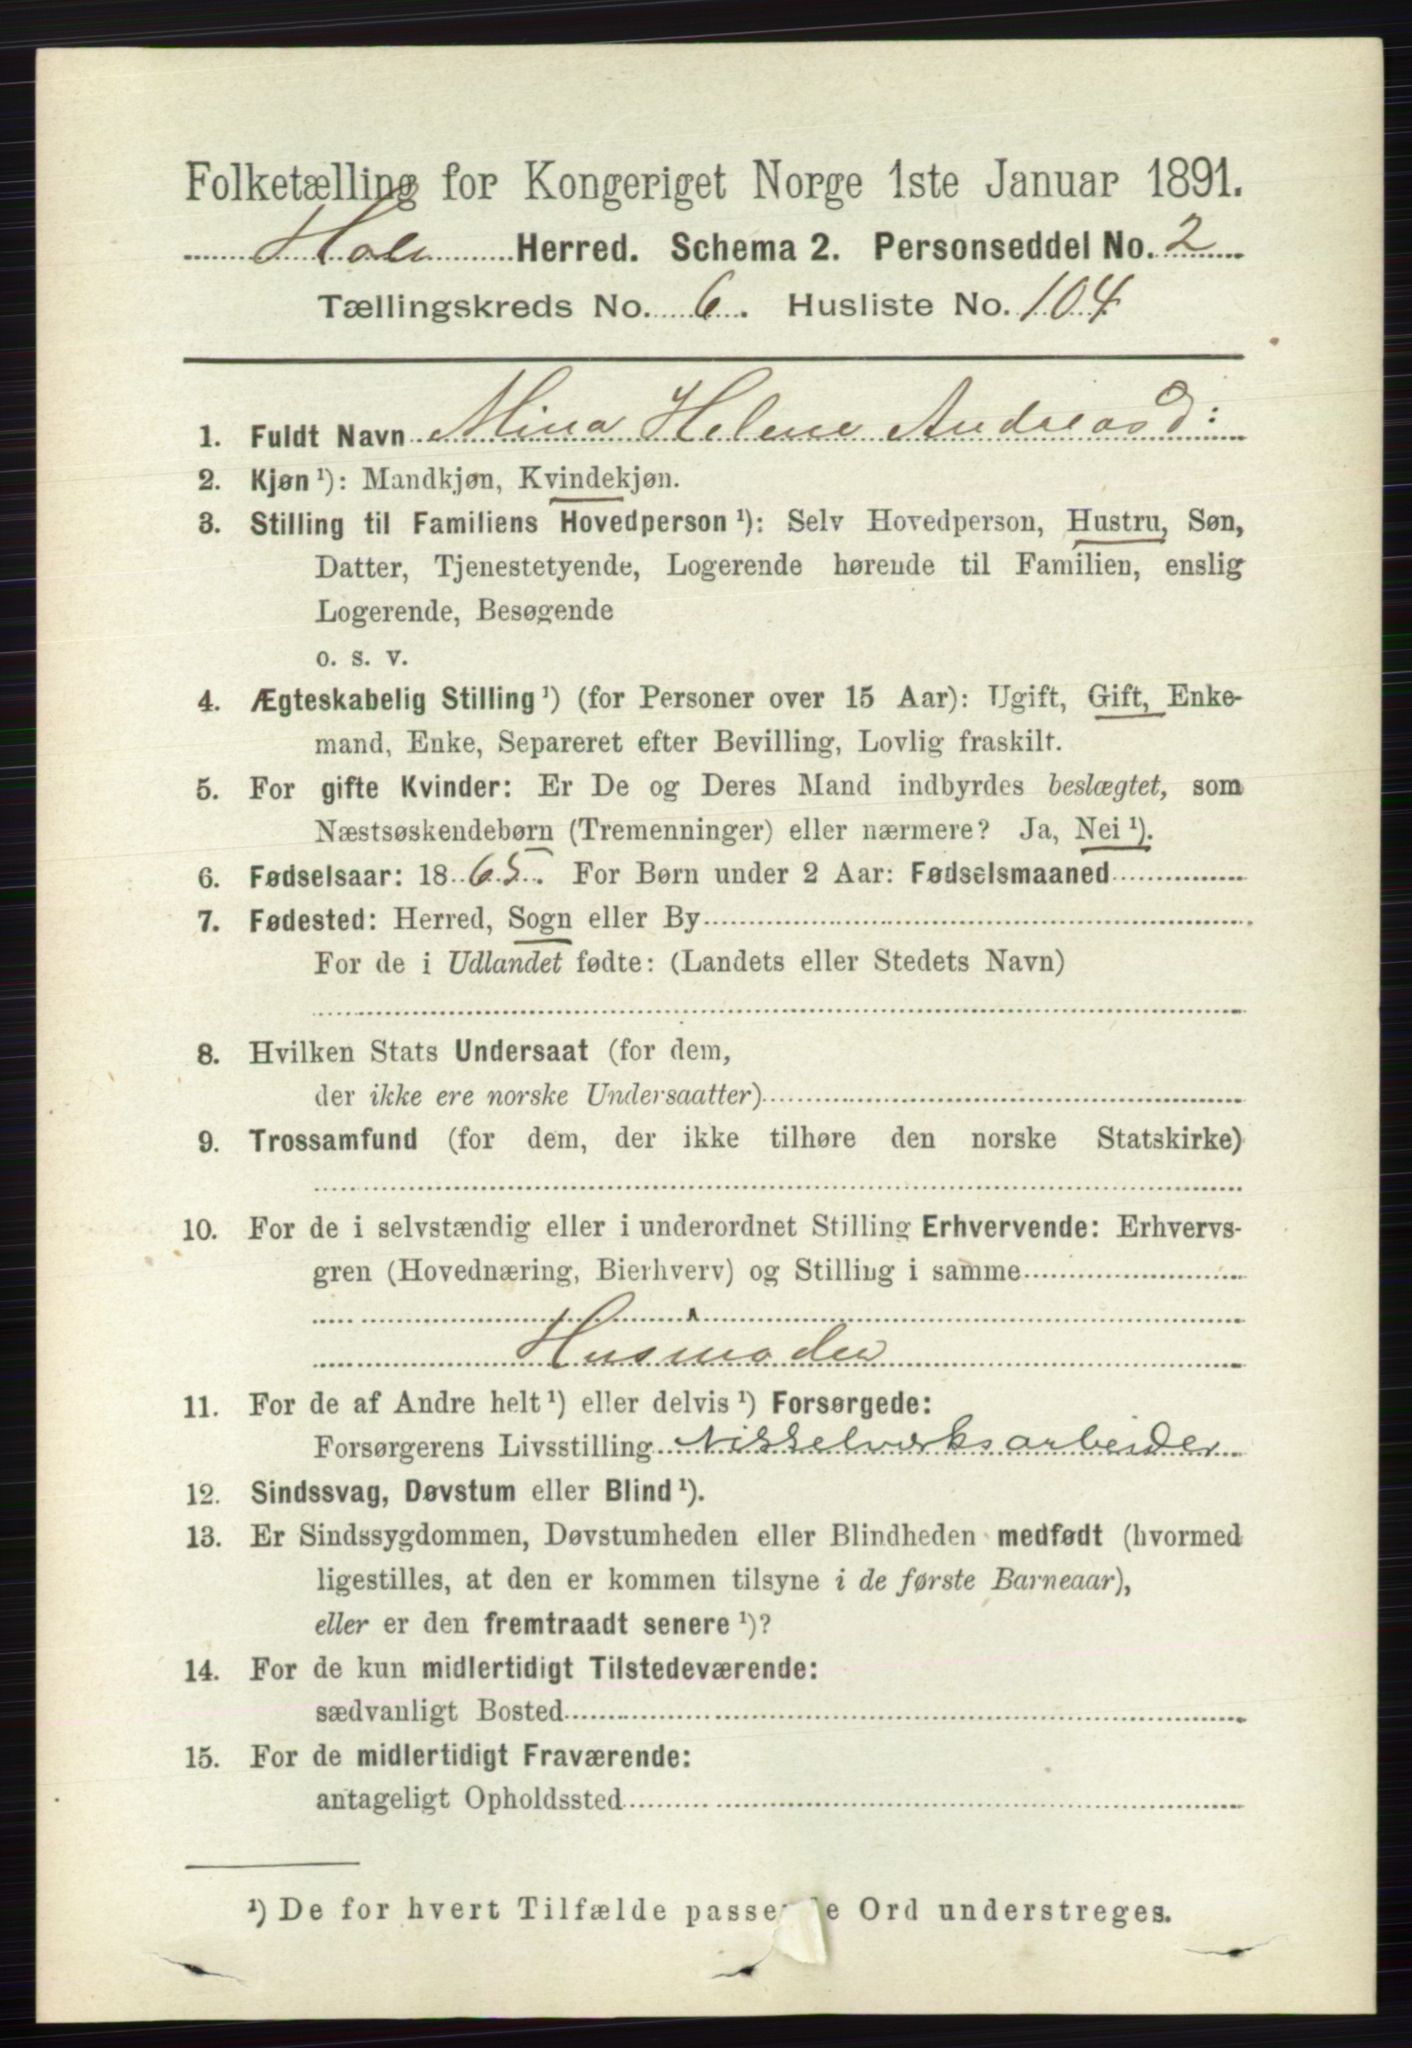 Folketælling for Kongeriget Norge 1ste Januar 1891.
Hole Herred. Schema 2. Personseddel No. 2
Tællingskreds No. 6. Husliste No. 104
1. Fuldt Navn Mina Helene Andreasd:
2. Kjøn ¹): Mandkjøn, Kvindekjøn.
3. Stilling til Familiens Hovedperson ¹): Selv Hovedperson, Hustru, Søn,
Datter, Tjenestetyende, Logerende hørende til Familien, enslig
Logerende, Besøgende
o. s. v.
4. Ægteskabelig Stilling ¹) (for Personer over 15 Aar): Ugift, Gift, Enke-
mand, Enke, Separeret efter Bevilling, Lovlig fraskilt.
5. For gifte Kvinder: Er De og Deres Mand indbyrdes beslægtet, som
Næstsøskendebørn (Tremenninger) eller nærmere? Ja, Nei ¹).
6. Fødselsaar: 1865. For Børn under 2 Aar: Fødselsmaaned
7. Fødested: Herred, Sogn eller By
For de i Udlandet fødte: (Landets eller Stedets Navn)
8. Hvilken Stats Undersaat (for dem,
der ikke ere norske Undersaatter)
9. Trossamfund (for dem, der ikke tilhøre den norske Statskirke)
10. For de i selvstændig eller i underordnet Stilling Erhvervende: Erhvervs-
gren (Hovednæring, Bierhverv) og Stilling i samme
Husmoder
11. For de af Andre helt ¹) eller delvis ¹) Forsørgede:
Forsørgerens Livsstilling Nikkelverksarbeider
12. Sindssvag, Døvstum eller Blind ¹).
13. Er Sindssygdommen, Døvstumheden eller Blindheden medfødt (hvormed
ligestilles, at den er kommen tilsyne i de første Barneaar),
eller er den fremtraadt senere ¹)?
14. For de kun midlertidigt Tilstedeværende:
sædvanligt Bosted
15. For de midlertidigt Fraværende:
antageligt Opholdssted
¹) De for hvert Tilfælde passende Ord understreges.